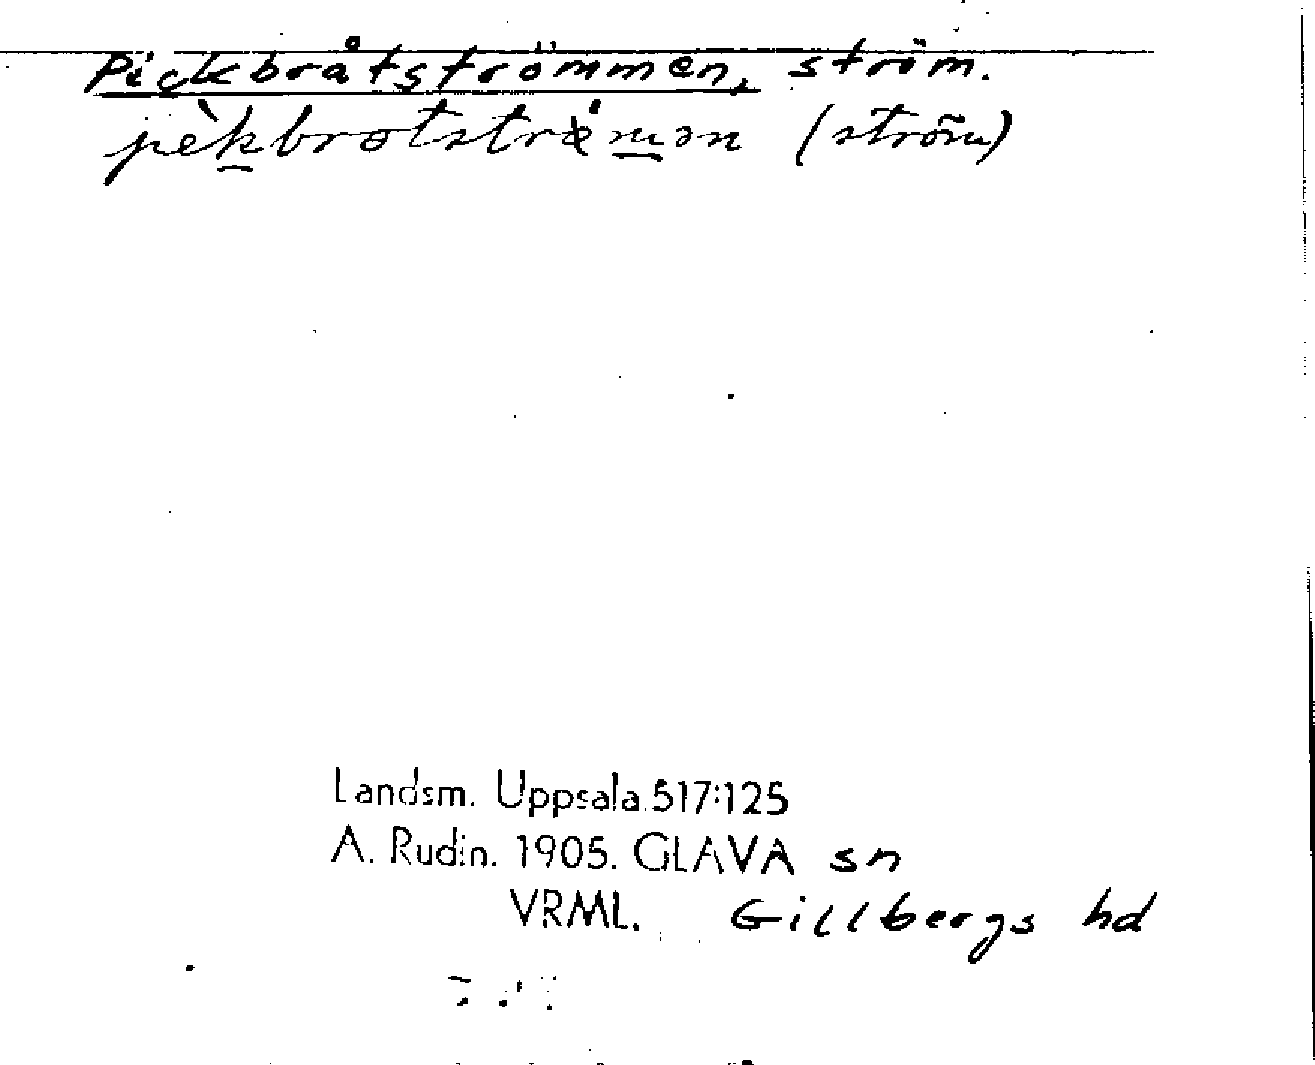 Pickbråtströmmen, ström.
pèkbrotstrə́mən (ström)
Landsm. Uppsala 517:125
A. Rudin. 1905. GLAVA sn
VRML. Gillbergs hd